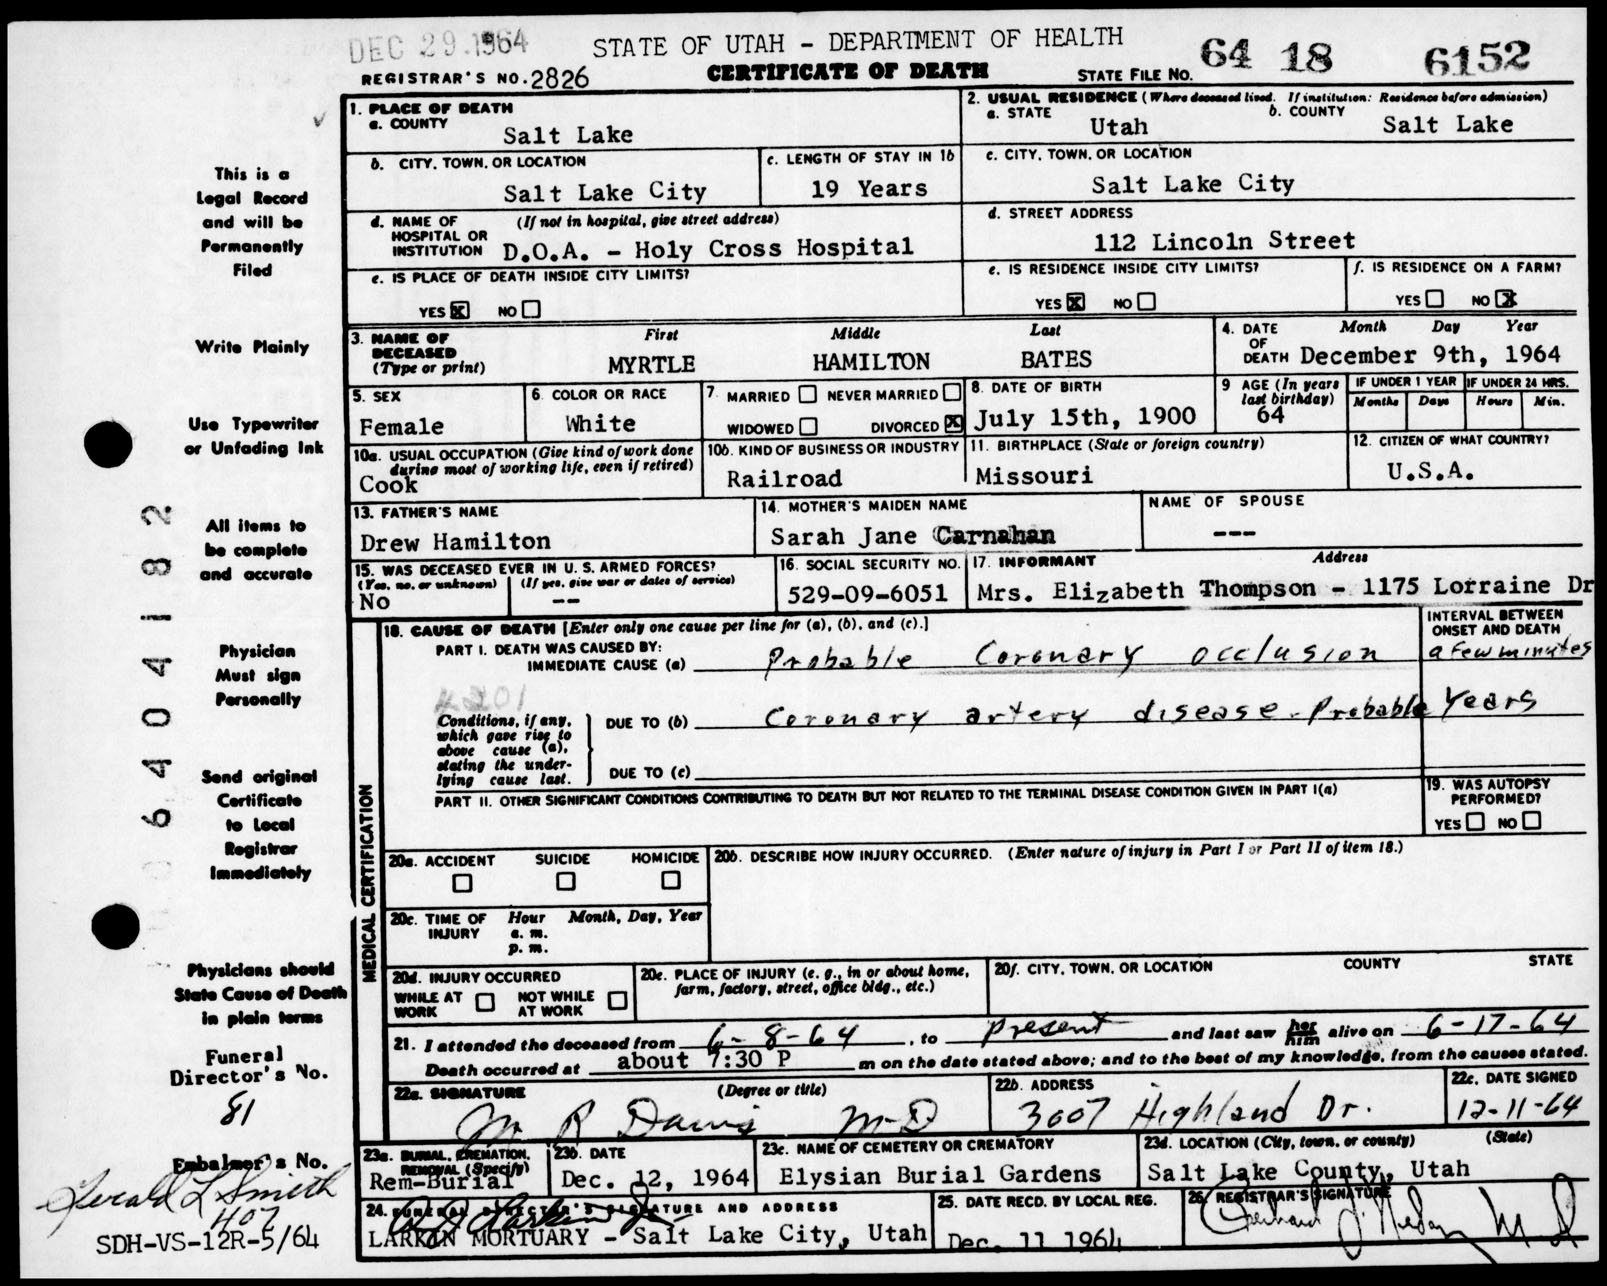 DEC 29 1964
STATE OF UTAH - DEPARTMENT OF HEALTH
CERTIFICATE OF DEATH
REGISTRAR'S NO. 2826
STATE FILE NO. 64 18 6152
1. PLACE OF DEATH
a. COUNTY
Salt Lake
2. USUAL RESIDENCE (Where deceased lived. If institution: Residence before admission)
a. STATE
Utah
b. COUNTY
Salt Lake
b. CITY, TOWN, OR LOCATION
Salt Lake City
c. LENGTH OF STAY IN 1b
19 Years
c. CITY, TOWN, OR LOCATION
Salt Lake City
d. NAME OF HOSPITAL OR INSTITUTION
(If not in hospital, give street address)
D.O.A. - Holy Cross Hospital
d. STREET ADDRESS
112 Lincoln Street
e. IS PLACE OF DEATH INSIDE CITY LIMITS?
YES X NO
e. IS RESIDENCE INSIDE CITY LIMITS?
YES X NO
f. IS RESIDENCE ON A FARM?
YES NO X
3. NAME OF DECEASED (Type or print)
First Middle Last
MYRTLE HAMILTON BATES
4. DATE OF DEATH
Month Day Year
December 9th, 1964
5. SEX
Female
6. COLOR OR RACE
White
7. MARRIED NEVER MARRIED
WIDOWED DIVORCED X
8. DATE OF BIRTH
July 15th, 1900
9 AGE (In years last birthday)
64
IF UNDER 1 YEAR
Months Days
IF UNDER 24 HRS.
Hours Min.
10a. USUAL OCCUPATION (Give kind of work done during most of working life, even if retired)
Cook
10b. KIND OF BUSINESS OR INDUSTRY
Railroad
11. BIRTHPLACE (State or foreign country)
Missouri
12. CITIZEN OF WHAT COUNTRY?
U.S.A.
13. FATHER'S NAME
Drew Hamilton
14. MOTHER'S MAIDEN NAME
Sarah Jane Carnahan
NAME OF SPOUSE
---
15. WAS DECEASED EVER IN U. S. ARMED FORCES?
(Yes, no, or unknown) (If yes, give war or dates of service)
No --
16. SOCIAL SECURITY NO.
529-09-6051
17. INFORMANT Address
Mrs. Elizabeth Thompson - 1175 Lorraine Dr
MEDICAL CERTIFICATION
18. CAUSE OF DEATH [Enter only one cause per line for (a), (b), and (c).]
INTERVAL BETWEEN ONSET AND DEATH
PART I. DEATH WAS CAUSED BY:
IMMEDIATE CAUSE (a) Probable Coronary occlusion a few minutes
4201
Conditions, if any, which gave rise to above cause (a), stating the underlying cause last.
DUE TO (b) Coronary artery disease - Probable Years
DUE TO (c)
PART II. OTHER SIGNIFICANT CONDITIONS CONTRIBUTING TO DEATH BUT NOT RELATED TO THE TERMINAL DISEASE CONDITION GIVEN IN PART I(a)
19. WAS AUTOPSY PERFORMED?
YES NO
20a. ACCIDENT SUICIDE HOMICIDE
20b. DESCRIBE HOW INJURY OCCURRED. (Enter nature of injury in Part I or Part II of item 18.)
20c. TIME OF INJURY
Hour Month, Day, Year
a. m.
p. m.
20d. INJURY OCCURRED
WHILE AT WORK NOT WHILE AT WORK
20e. PLACE OF INJURY (e. g., in or about home, farm, factory, street, office bldg., etc.)
20f. CITY, TOWN, OR LOCATION COUNTY STATE
21. I attended the deceased from 6-8-64, to present and last saw her him alive on 6-17-64
Death occurred at about 7:30 P m on the date stated above; and to the best of my knowledge, from the causes stated.
22a. SIGNATURE (Degree or title)
M R Davis MD
22b. ADDRESS
3007 Highland Dr.
22c. DATE SIGNED
12-11-64
23a. BURIAL, CREMATION, REMOVAL (Specify)
Rem-Burial
23b. DATE
Dec. 12, 1964
23c. NAME OF CEMETERY OR CREMATORY
Elysian Burial Gardens
23d. LOCATION (City, town, or county) (State)
Salt Lake County, Utah
24. FUNERAL DIRECTOR'S SIGNATURE AND ADDRESS
LARKIN MORTUARY - Salt Lake City, Utah
25. DATE RECD. BY LOCAL REG.
Dec. 11 1964
26. REGISTRAR'S SIGNATURE
This is a
Legal Record
and will be
Permanently
Filed
Write Plainly
Use Typewriter
or Unfading Ink
All items to
be complete
and accurate
Physician
Must sign
Personally
Send original
Certificate
to Local
Registrar
Immediately
Physicians should
State Cause of Death
in plain terms
Funeral
Director's No.
81
Embalmer's No.
Gerald L Smith
407
SDH-VS-12R-5/64
06404182